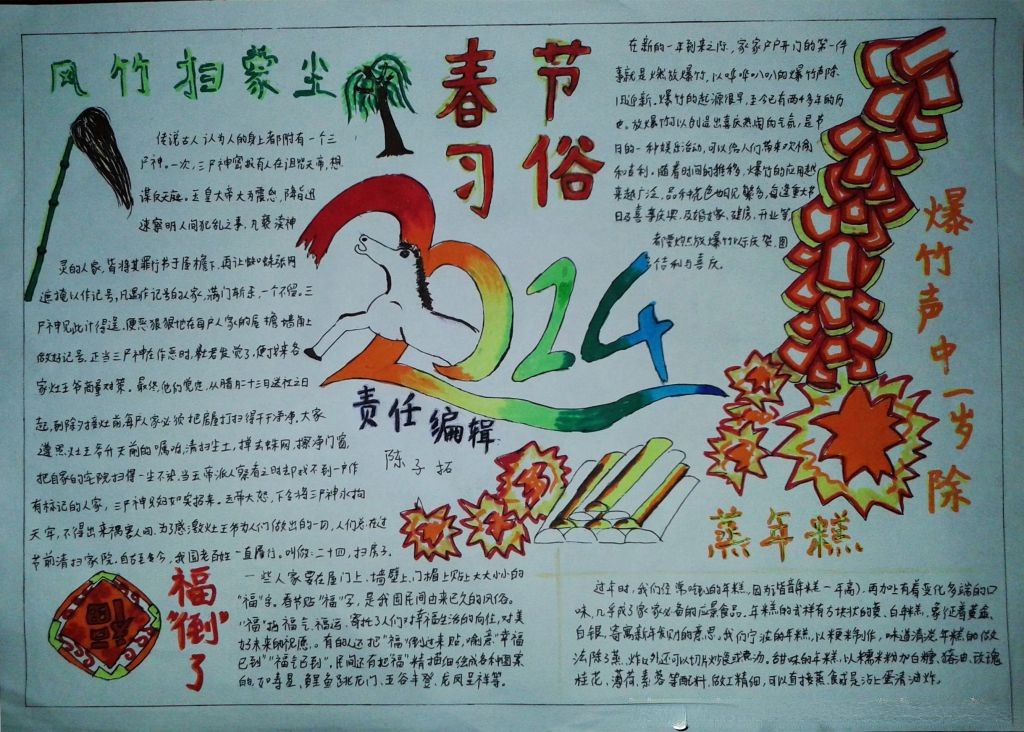 春节
习俗
2014
责任编辑
陈子拓
风竹扫蒙尘
传说古人认为人的身上都附有一个三
尸神。一次，三尸神密报有人在诅咒天帝，想
谋反天庭。玉皇大帝大为震怒，降旨迅
速察明人间犯乱之事，凡亵渎神
灵的人家，皆将其罪行书于屋檐下，再让蜘蛛张网
遮掩以作记号，凡是作记号的人家，满门斩杀，一个不留。三
尸神见此计得逞，便恶狠狠地在每户人家的屋檐墙角上
做好记号，正当三尸神在作恶时，灶君发觉了，便找来各
家灶王爷商量对策。最终，他们觉定，从腊月二十三日送灶之日
起，到除夕接灶前，每户人家必须把屋打扫得干干净净，大家
遵照灶王爷升天前的嘱咐，清扫尘土，掸去蛛网，擦净门窗，
把自家的宅院扫得一尘不染。当玉帝派人察看之时却找不到一户作
有标记的人家，三尸神只好如实招来。玉帝大怒，下令将三尸神永拘
天牢，不得出来祸害人间。为了感激灶王爷为人们做出的一切，人们总在过
节前清扫家院，自古至今，我国老百姓一直履行。叫做：二十四，扫房子。
福
“倒”
了
一些人家要在屋门上、墙壁上、门楣上贴上大大小小的
“福”字。春节贴“福”字，是我国民间由来已久的风俗。
“福”指福气、福运，寄托了人们对幸福生活的向往，对美
好未来的祝愿。有的还把“福”倒过来贴，喻意“幸福
已到”“福气已到”，民间还有把“福”精描细绘成各种图案
的，如寿星、鲤鱼跳龙门、五谷丰登、龙凤呈祥等。
福
在新的一年到来之际，家家户户开门的第一件
事就是燃放爆竹，以哔哔叭叭的爆竹声除
旧迎新。爆竹的起源很早，至今已有两千多年的历
史。放爆竹可以创造出喜庆热闹的气氛，是节
日的一种娱乐活动，可以给人们带来欢愉
和吉利。随着时间的推移，爆竹的应用越
来越广泛，品种花色也日见繁多，每逢重大节
日及喜事庆典，及婚嫁、建房、开业等
都要燃放爆竹以示庆贺，图
吉利与喜庆。
爆竹声中一岁除
蒸年糕
过年时，我们经常吃到的年糕，因为谐音年糕（年高），再加上有着变化多端的口
味，几乎成了家家必备的应景食品。年糕的式样有方块状的黄、白年糕，象征着黄金、
白银，寄寓新年发财的意思。我们宁波的年糕，以粳米制作，味道清淡。年糕的做
法除了蒸、炸以外还可以切片炒或煮汤。甜味的年糕，以糯米粉加白糖、猪油、玫瑰
桂花、薄荷、素蓉等配料，做工精细，可以直接蒸食或是沾上蛋清油炸。